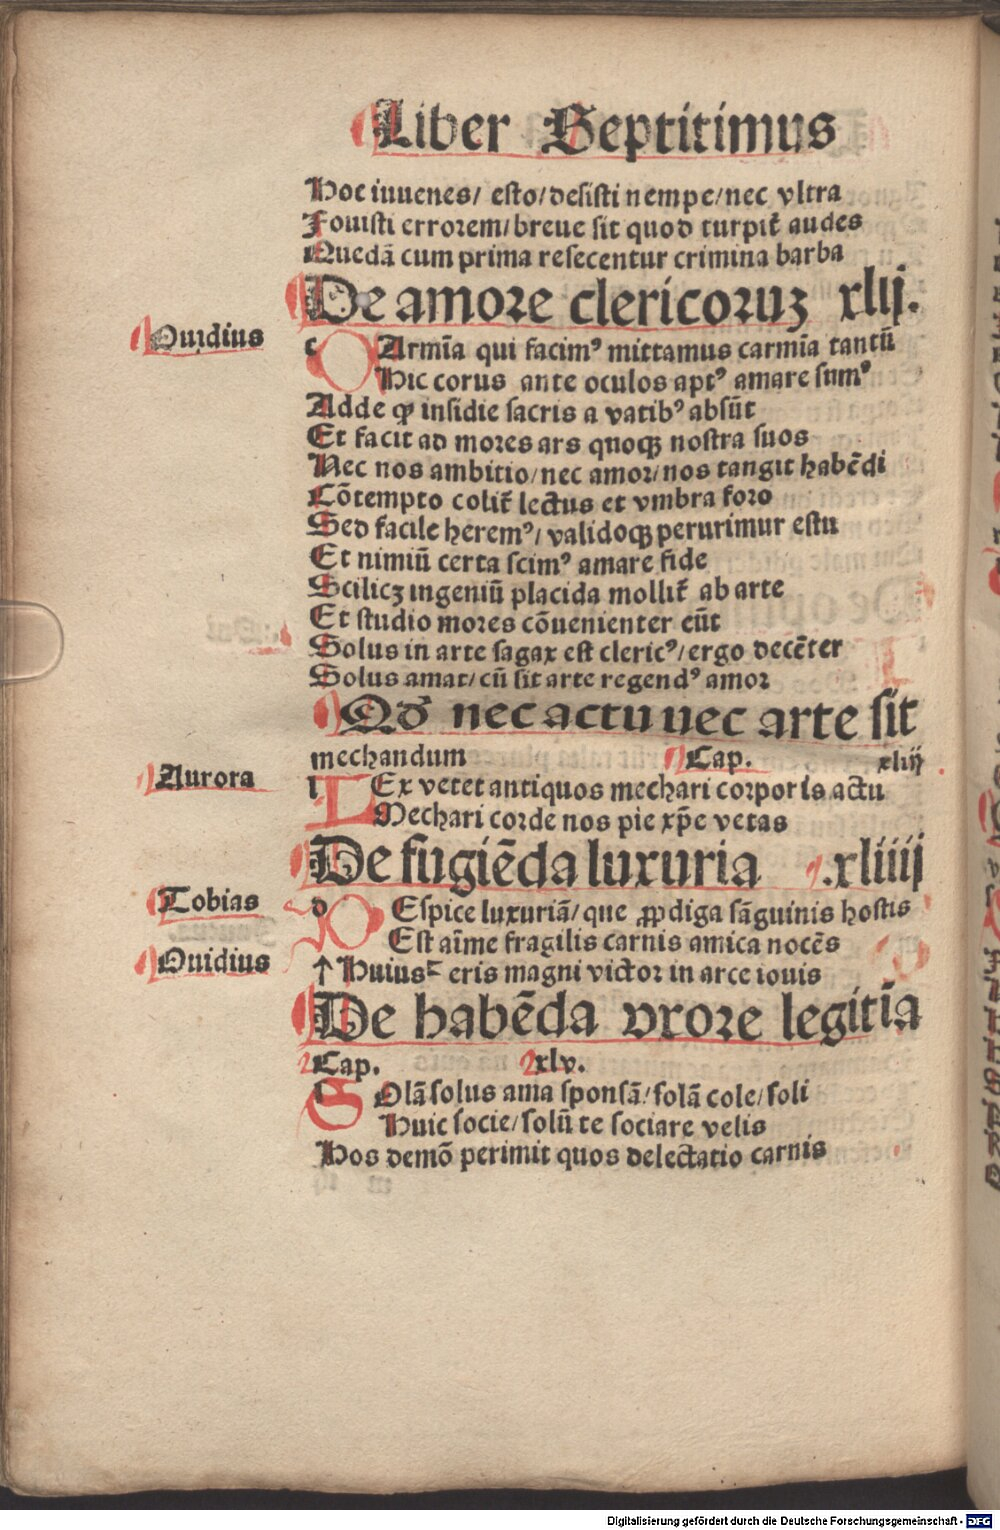 Liber Septitimus
Hoc iuuenes/ esto/desisti nempe/nec vltra
Fouisti errorem/breue sit quod turpit᷑ audes
Quedā cum prima resecentur crimina barba
De amore clericoruꝫ xlij.
Ouidius
c Armīa qui facimꝰ mittamus carmīa tantū
Hic corus ante oculos aptꝰ amare sumꝰ
Adde ꝙ insidie sacris a vatibꝰ absūt
Et facit ad mores ars quoqꝫ nostra suos
Nec nos ambitio/nec amor/nos tangit habēdi
Cōtempto colit᷑ lectus et vmbra foro
Sed facile heremꝰ/validoqꝫ perurimur estu
Et nimiū certa scimꝰ amare fide
Scilicꝫ ingeniū placida mollit᷑ ab arte
Et studio mores cōuenienter eūt
Solus in arte sagax est clericꝰ/ergo decēter
Solus amat/cū sit arte regendꝰ amor
Qd̄ nec actu nec arte sit
mechandum Cap. xliij
Aurora
l Ex vetet antiquos mechari corporis actu
Mechari corde nos pie xp̄e vetas
De fugiēda luxuria .xliiij
Tobias
d Espice luxuriā/que ꝓdiga sāguinis hostis
Est aīme fragilis carnis amica nocēs
Ouidius
↑ Huius eris magni victor in arce iouis
De habēda vxore legitīa
Cap. xlv.
s Olā solus ama sponsā/solā cole/soli
Huic socie/solū te sociare velis
Hos demō perimit quos delectatio carnis
Digitalisierung gefördert durch die Deutsche Forschungsgemeinschaft - DFG